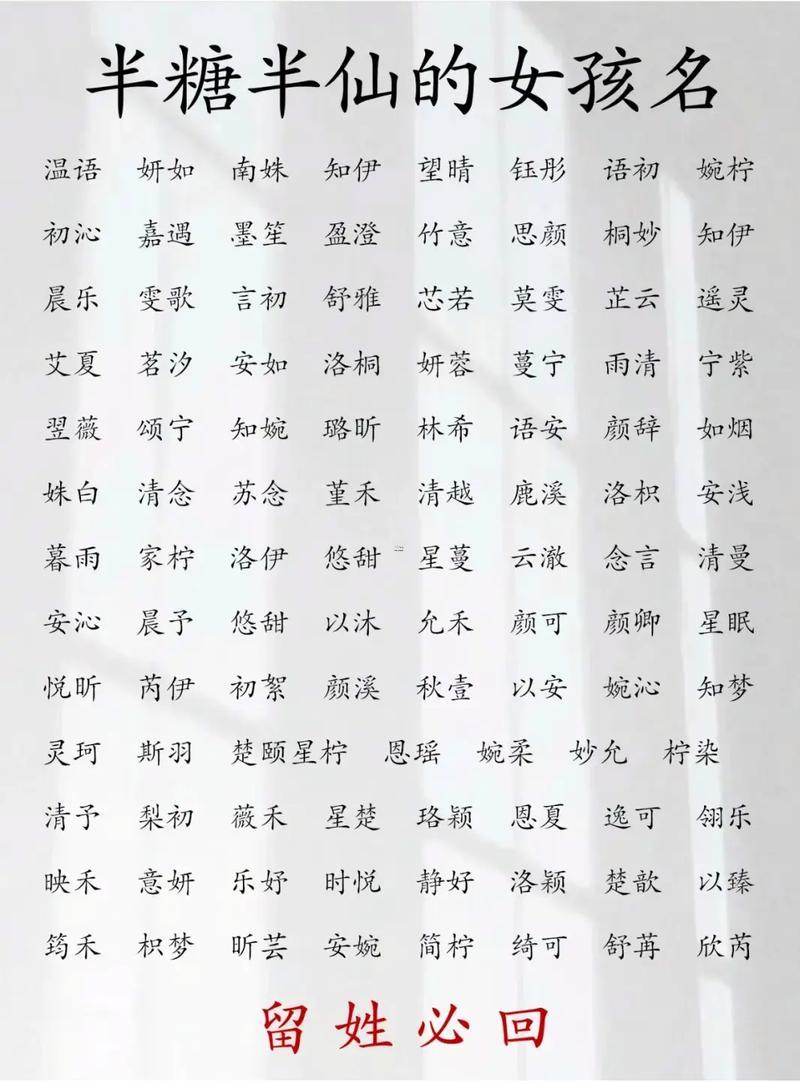 半糖半仙的女孩名
温语 妍如 南姝 知伊 望晴 钰彤 语初 婉柠
初沁 嘉遇 墨笙 盈澄 竹意 思颜 桐妙 知伊
晨乐 雯歌 言初 舒雅 芯若 莫雯 芷云 遥灵
艾夏 茗汐 安如 洛桐 妍蓉 蔓宁 雨清 宁紫
翌薇 颂宁 知婉 璐昕 林希 语安 颜辞 如烟
姝白 清念 苏念 堇禾 清越 鹿溪 洛枳 安浅
暮雨 家柠 洛伊 悠甜 星蔓 云澈 念言 清曼
安沁 晨予 悠甜 以沐 允禾 颜可 颜卿 星眠
悦昕 芮伊 初絮 颜溪 秋壹 以安 婉沁 知梦
灵珂 斯羽 楚颐星柠 恩瑶 婉柔 妙允 柠染
清予 梨初 薇禾 星楚 珞颖 恩夏 逸可 翎乐
映禾 意妍 乐妤 时悦 静好 洛颖 楚歆 以臻
筠禾 枳梦 昕芸 安婉 简柠 绮可 舒苒 欣芮
留姓必回